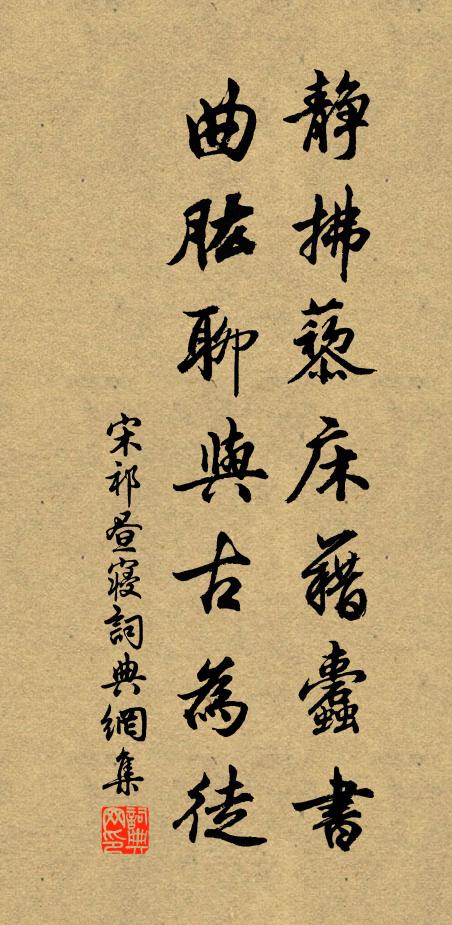 靜拂藜床藉蠹書
曲肱聊與古為徒
宋祁晝寢詞典網集
詞典網印